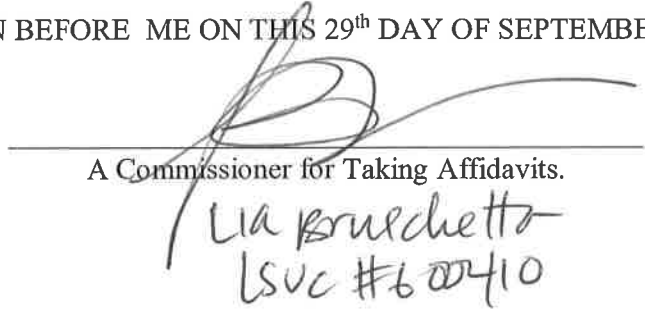 N BEFORE ME ON THIS 29th DAY OF SEPTEMBE
A Commissioner for Taking Affidavits.
Lia Bruschetta
LSUC #600410